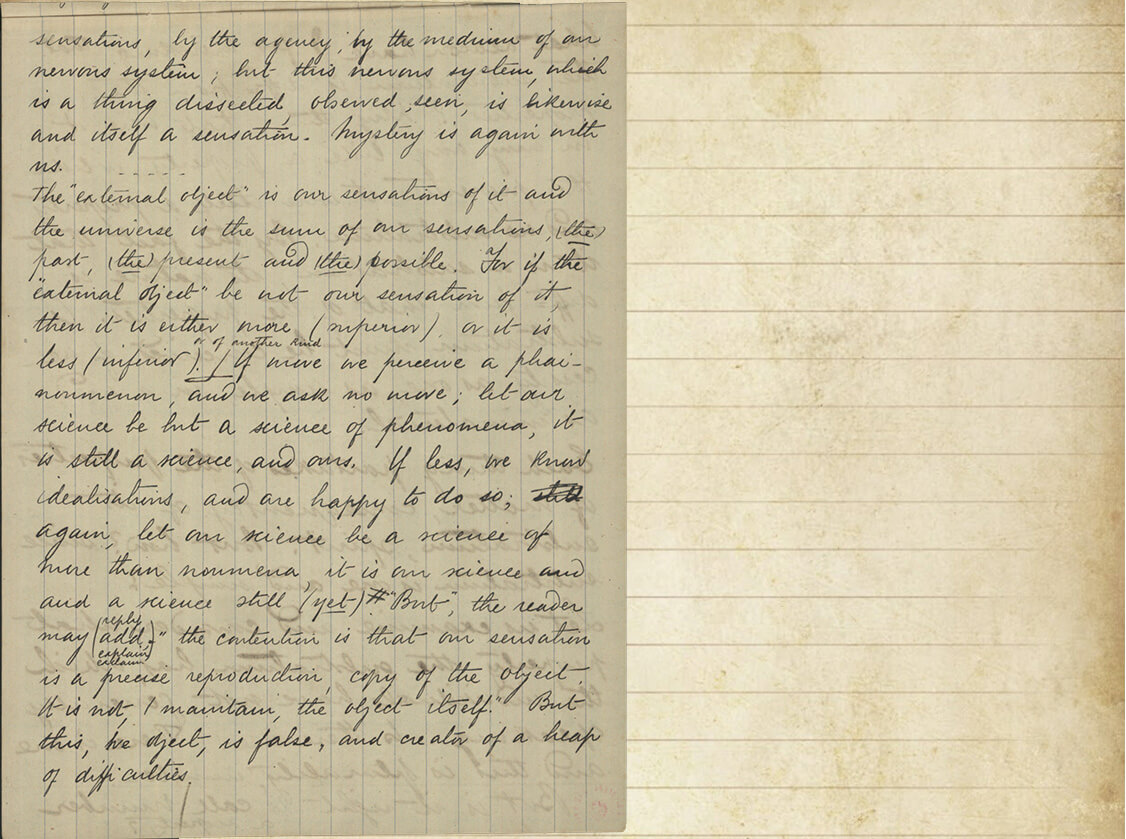 sensations, by the agency, by the medium of our
nervous system; but this nervous system, which
is a thing dissected, observed, seen, is likewise
and itself a sensation. Mystery is again with
us. - - - - -
The "external object" is our sensations of it and
the universe is the sum of our sensations, (the)
past, (the) present and (the) possible. For if the
"external object" be not our sensation of it,
then it is either more (superior), or it is
or of another kind
less (inferior). If more we perceive a phai-
noumenon, and we ask no more; let our
science be but a science of phenomena, it
is still a science, and ours. If less, we know
idealisations, and are happy to do so; still
again, let our science be a science of
more than noumena, it is our science and
and a science still (yet) # "But", the reader
reply
may (add," the contention is that our sensation
explain
exclaim
is a precise reproduction, copy of the object.
It is not, I maintain, the object itself." But
this, we object, is false, and creator of a heap
of difficulties